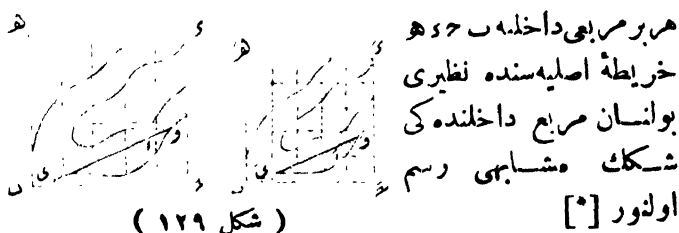 هر بر مربعی داخلنه ب ح ء ھ
خریطهٔ اصلیه‌سنده نظیری
بولنسان مربع داخلنده‌کی
شکلك مشابهی رسم
اولنور [*]
( شکل ١٢٩ )